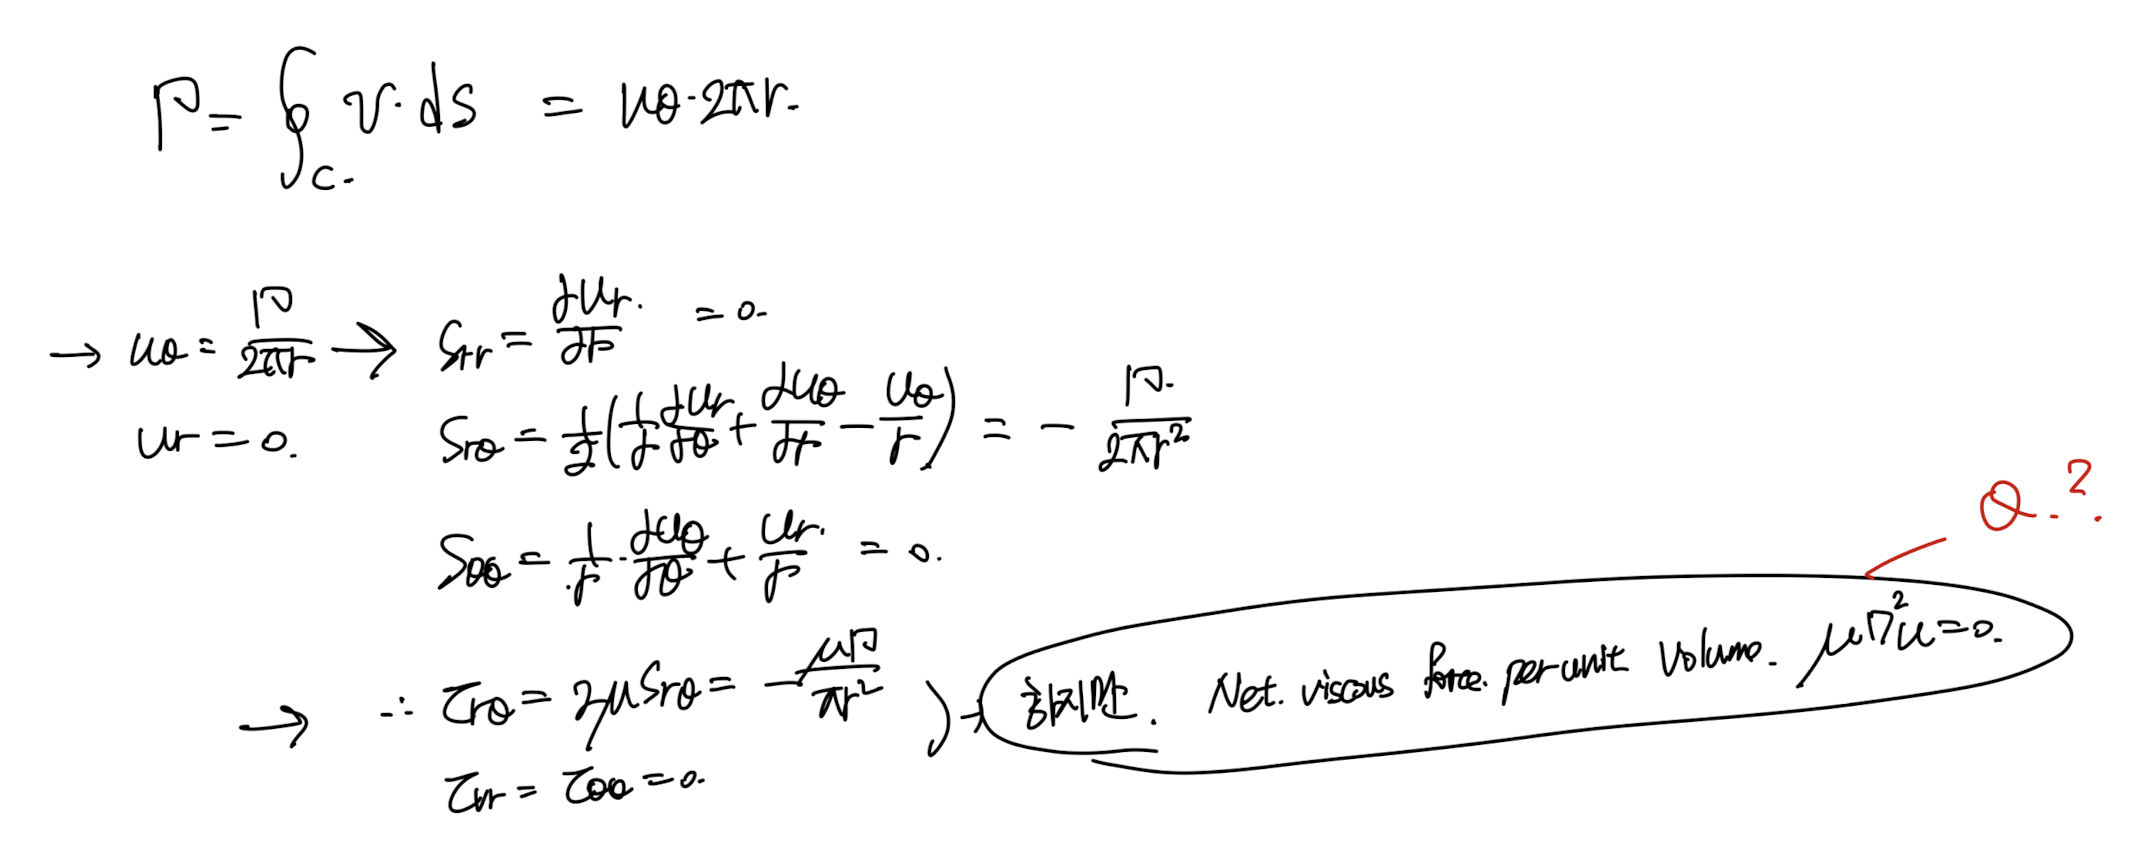 Γ = ∮_C v · ds = uθ · 2πr.
→ uθ = Γ/2πr → Srr = ∂ur/∂r = 0.
ur = 0. Srθ = 1/2 (1/r ∂ur/∂θ + ∂uθ/∂r − uθ/r) = − Γ/2πr²
Q.?
Sθθ = 1/r · ∂uθ/∂θ + ur/r = 0.
→ ∴ τrθ = 2μSrθ = − μΓ/πr² ) → 하지만. Net. viscous force. per unit Volume. μ∇²u = 0.
τrr = τθθ = 0.